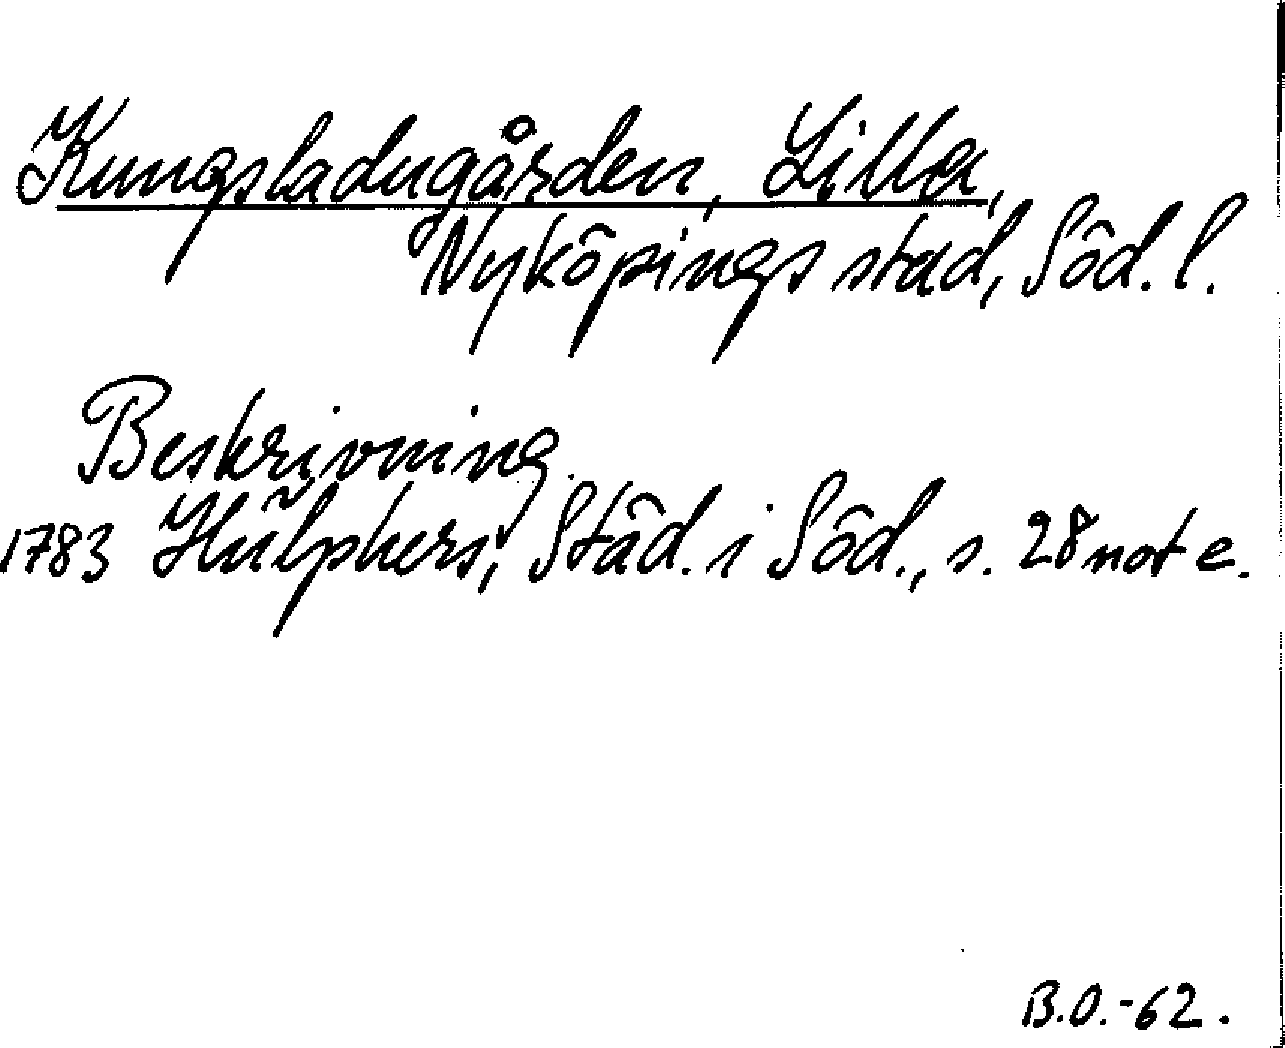 Kungsladugården, Lilla,
Nyköpings stad, Söd. l.
Beskrivning.
1783 Hülphers, Städ. i Söd., s. 28 not e.
B.O.-62.